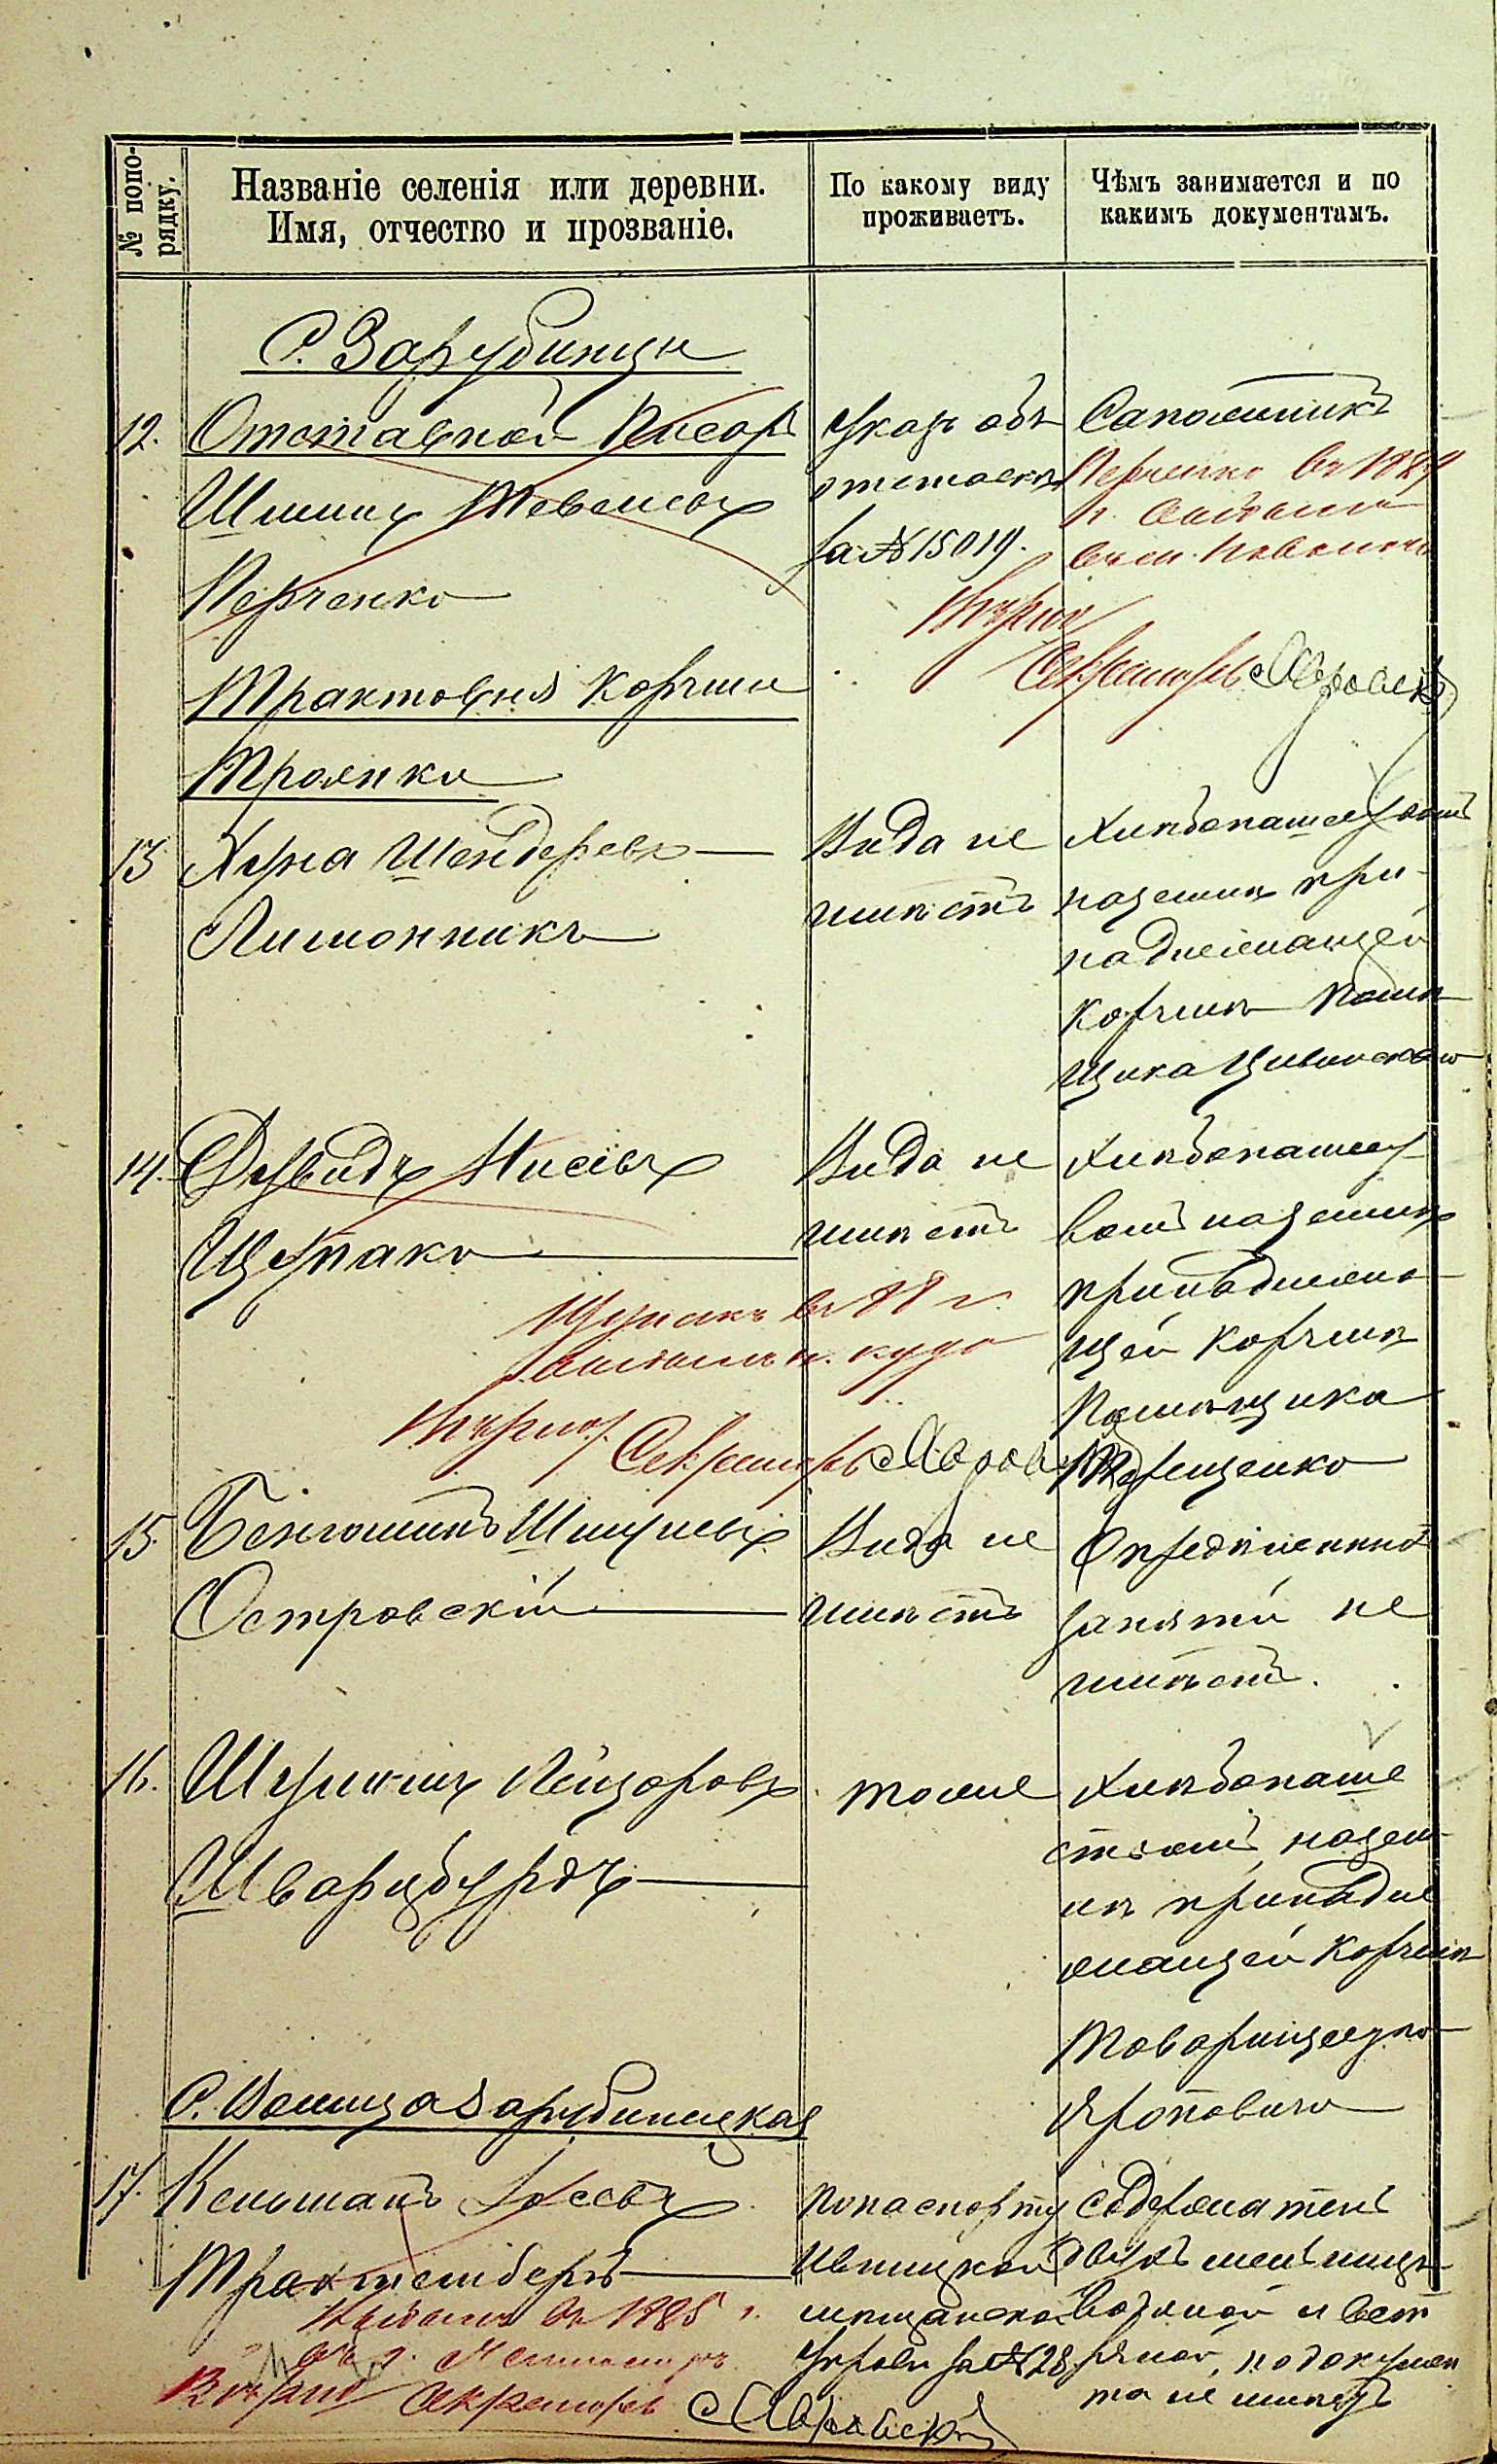 № попо-
рядку.
Названіе селенія или деревни.
Имя, отчество и прозваніе.
По какому виду
проживаетъ.
Чѣмъ занимается и по
какимъ документамъ.
С. Зарубинцы
12.
Отставной
Перченко
Указъ объ
отставкѣ
за № 15019.
Сапожникъ
Перченко въ 188
г.
Вѣрно
Секретарь Яворскій
Трактовыя Корчмы
Троянки
13
Хуна Шендеровъ
Лимонникъ
Вида не
имѣетъ
Хлѣбопашествомъ
наземлѣ при-
надлежащей
Корчмѣ Помѣ
щика
14.
Дувидъ Нисевъ
Щупакъ
Вида не
имѣетъ
Хлѣбопашест
вомъ на землѣ
принадлежа-
щей Корчмѣ
Помѣщика
Терещенко
Щупакъ въ 88 г.
куда
Вѣрно.
Секретарь
15.
Беніоминъ Шмулевъ
Островскій
Вида не
имѣетъ
Опредѣленныхъ
занятій не
имѣетъ.
16.
Лейзоровъ
Шварцбурдъ
тоже
Хлѣбопаше
ствомъ, на зем-
лѣ принадле
жащей Корчмѣ
С. Волица Зарубинецкая
17.
Кельманъ Іосевъ
Трахтенберъ
По паспорту
Ивницкой
мѣщанской
управы за № 28
Содержатель
двухъ мельницъ
водяной и вѣт
ряной, но докумен
та не имѣетъ
въ 1885 г.
Вѣрно Секретарь